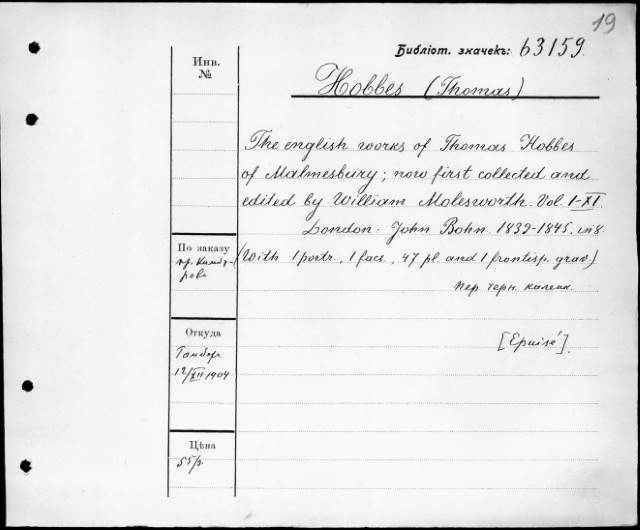 19
Библіот. значекъ: 63159.
Инв.
№
Hobbes (Thomas)
The english works of Thomas Hobbes
of Malmesbury; now first collected and
edited by William Molesworth. Vol. I-XI.
London. John Bohn. 1839-1845. in 8.
По заказу
пр.
(With 1 portr., 1 facs., 47 pl. and 1 frontisp. grav.)
пер. черн. каленк.
Откуда
12/XII 1904
[Epuisé].
Цѣна
55 р.